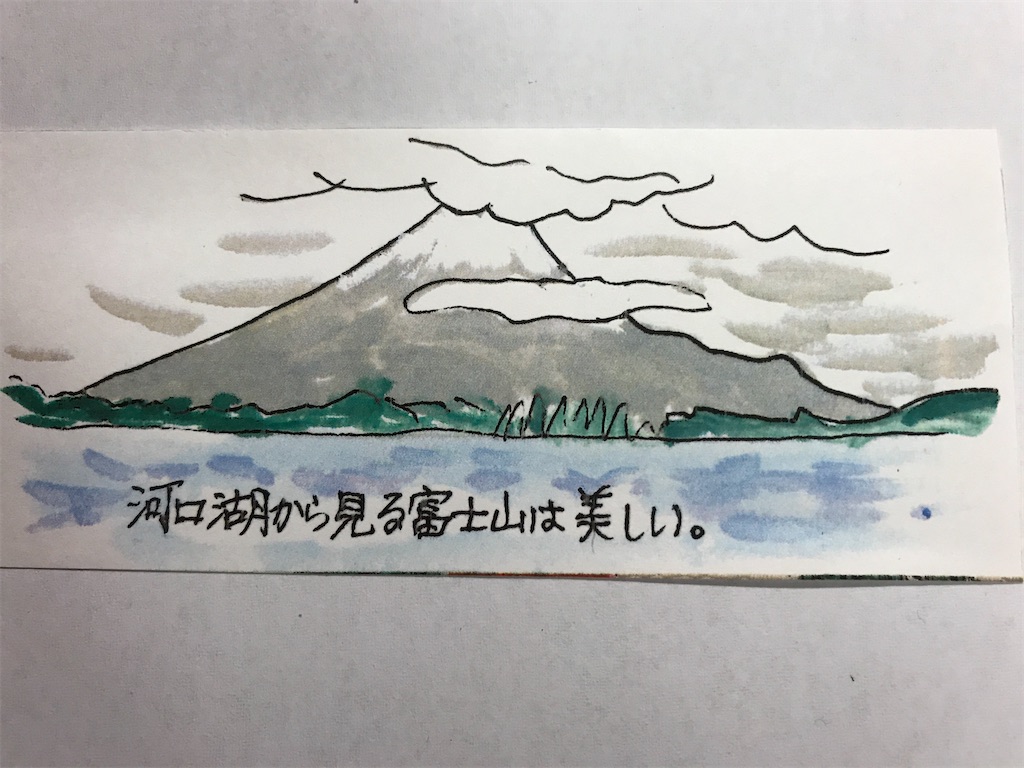 河口湖から見る富士山は美しい。